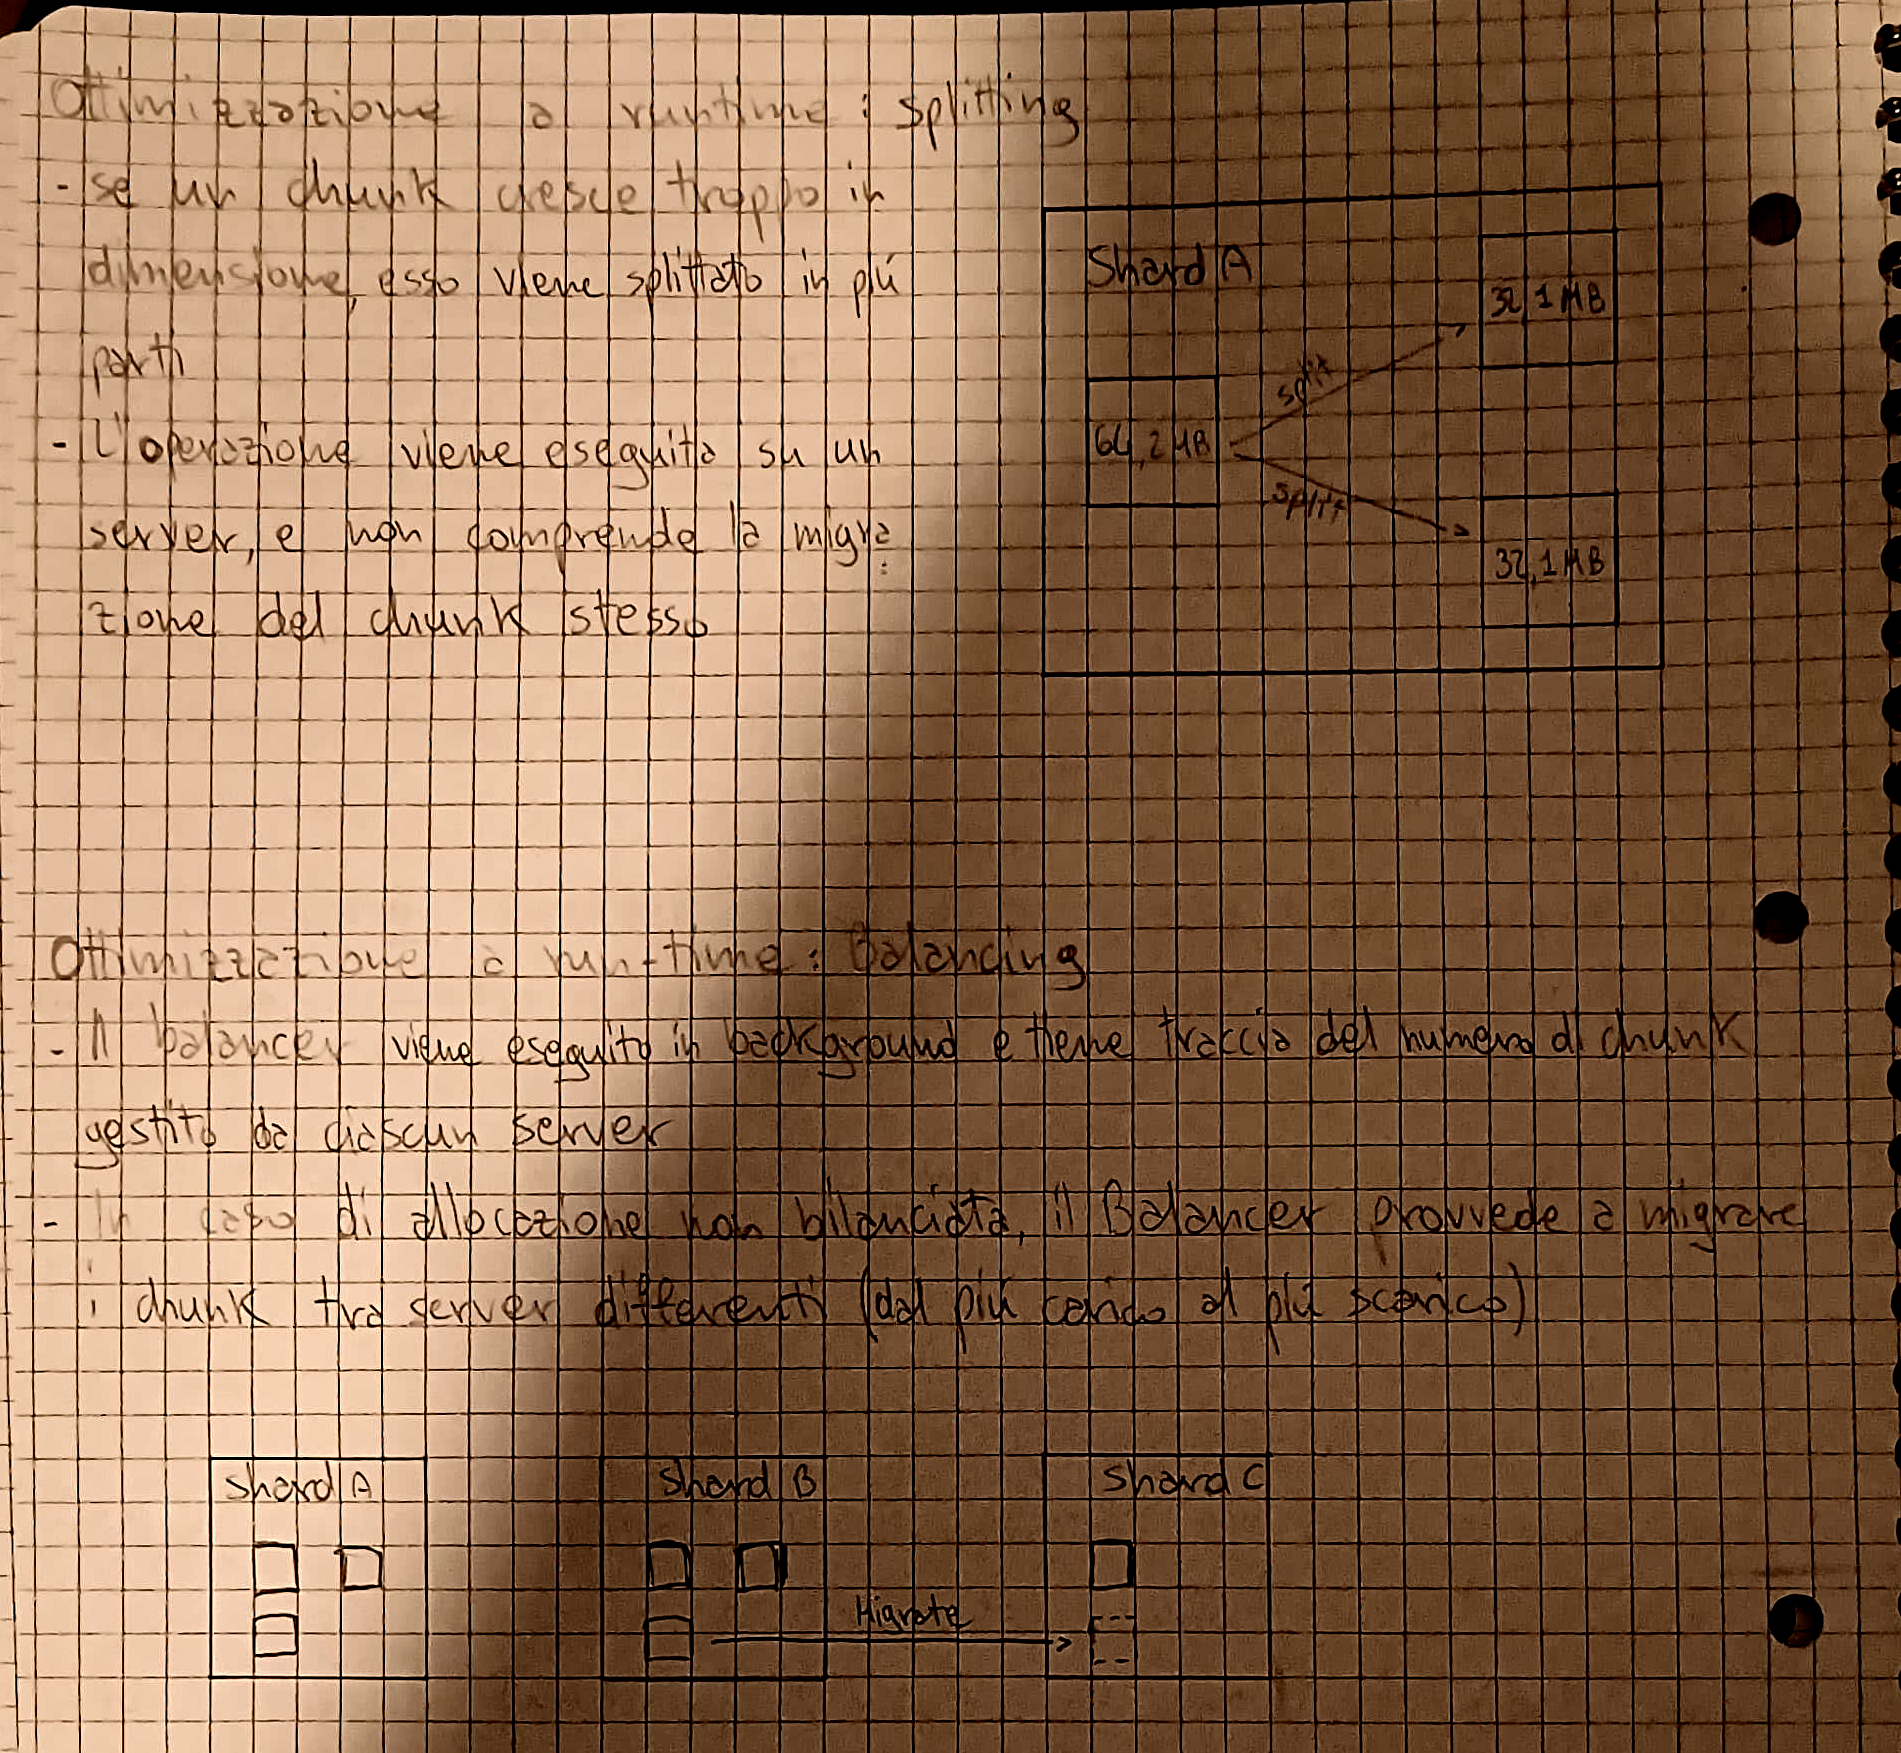 Ottimizzazione a runtime : splitting
- se un chunk cresce troppo in
dimensione, esso viene splittato in più
parti
- L'operazione viene eseguita su un
server, e non comprende la migra
zione del chunk stesso
Shard A
32,1 MB
split
64,2 MB
split
32,1 MB
Ottimizzazione a run-time : Balancing
- Il balancer viene eseguito in background e tiene traccia del numero di chunk
gestito da ciascun server
- In caso di allocazione non bilanciata, il Balancer provvede a migrare
i chunk tra server differenti (dal più carico al più scarico)
Shard A
Shard B
Shard C
Migrate